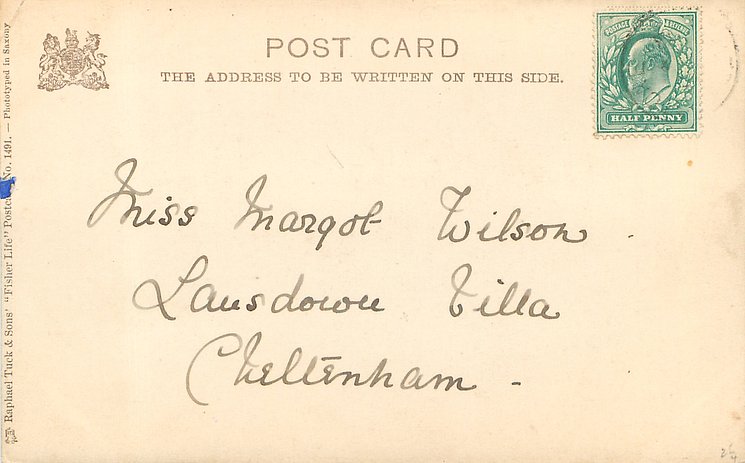 POST CARD
THE ADDRESS TO BE WRITTEN ON THIS SIDE.
POSTAGE REVENUE
HALF PENNY
Miss Margot Wilson
Lansdown Villa
Cheltenham -
Raphael Tuck & Sons' "Fisher Life" Postcard No. 1491. — Phototyped in Saxony